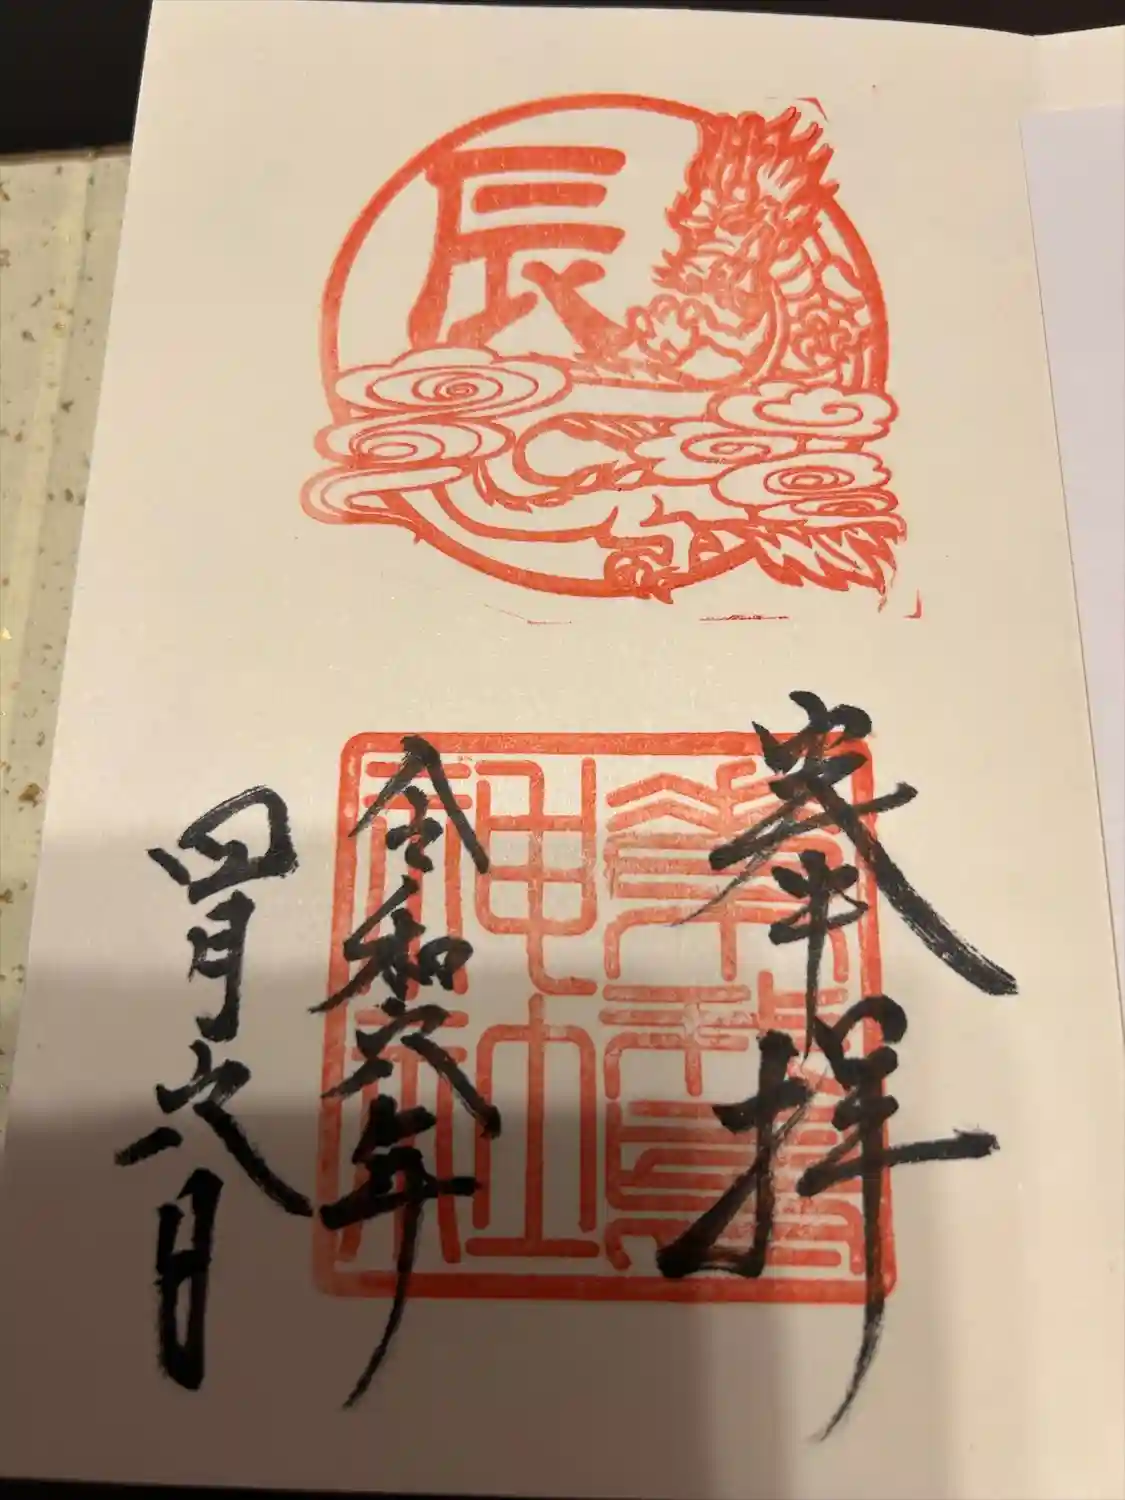 辰
奉拝
神社
令和六年
四月六日